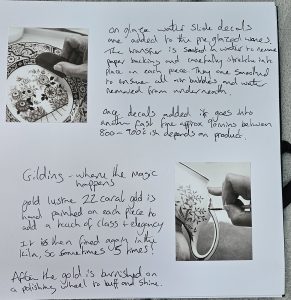 on glaze water slide decals
are added to the pre glazed wares.
The transfer is soaked in water to remove
paper backing and carefully stretched into
place on each piece. They are smoothed
to ensure all air bubbles and water
removed from underneath.
once decals added it goes into
another fast fire approx 90mins between
800-900°c depends on product.
Gilding - where the magic
happens
gold lustre 22 carat gold is
hand painted on each piece to
add a touch of class + elegancy
It is then fired again in the
kiln, so sometimes 5 times!
After the gold is burnished on
a polishing wheel to buff and shine.